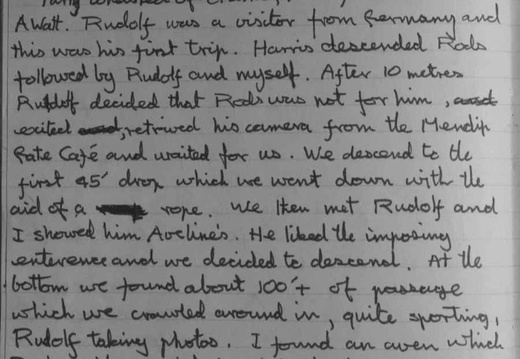 A Watt. Rudolf was a visitor from Germany and
this was his first trip. Harris descended Rods
followed by Rudolf and myself. After 10 metres
Rudolf decided that Rods was not for him, and
exited and, retrived his camera from the Mendip
Gate Café and waited for us. We descend to the
first 45' drop which we went down with the
aid of a rope. We then met Rudolf and
I showed him Aveline's. He liked the imposing
enterence and we decided to descend. At the
bottom we found about 100'+ of passage
which we crawled around in, quite sporting,
Rudolf taking photos. I found an aven which